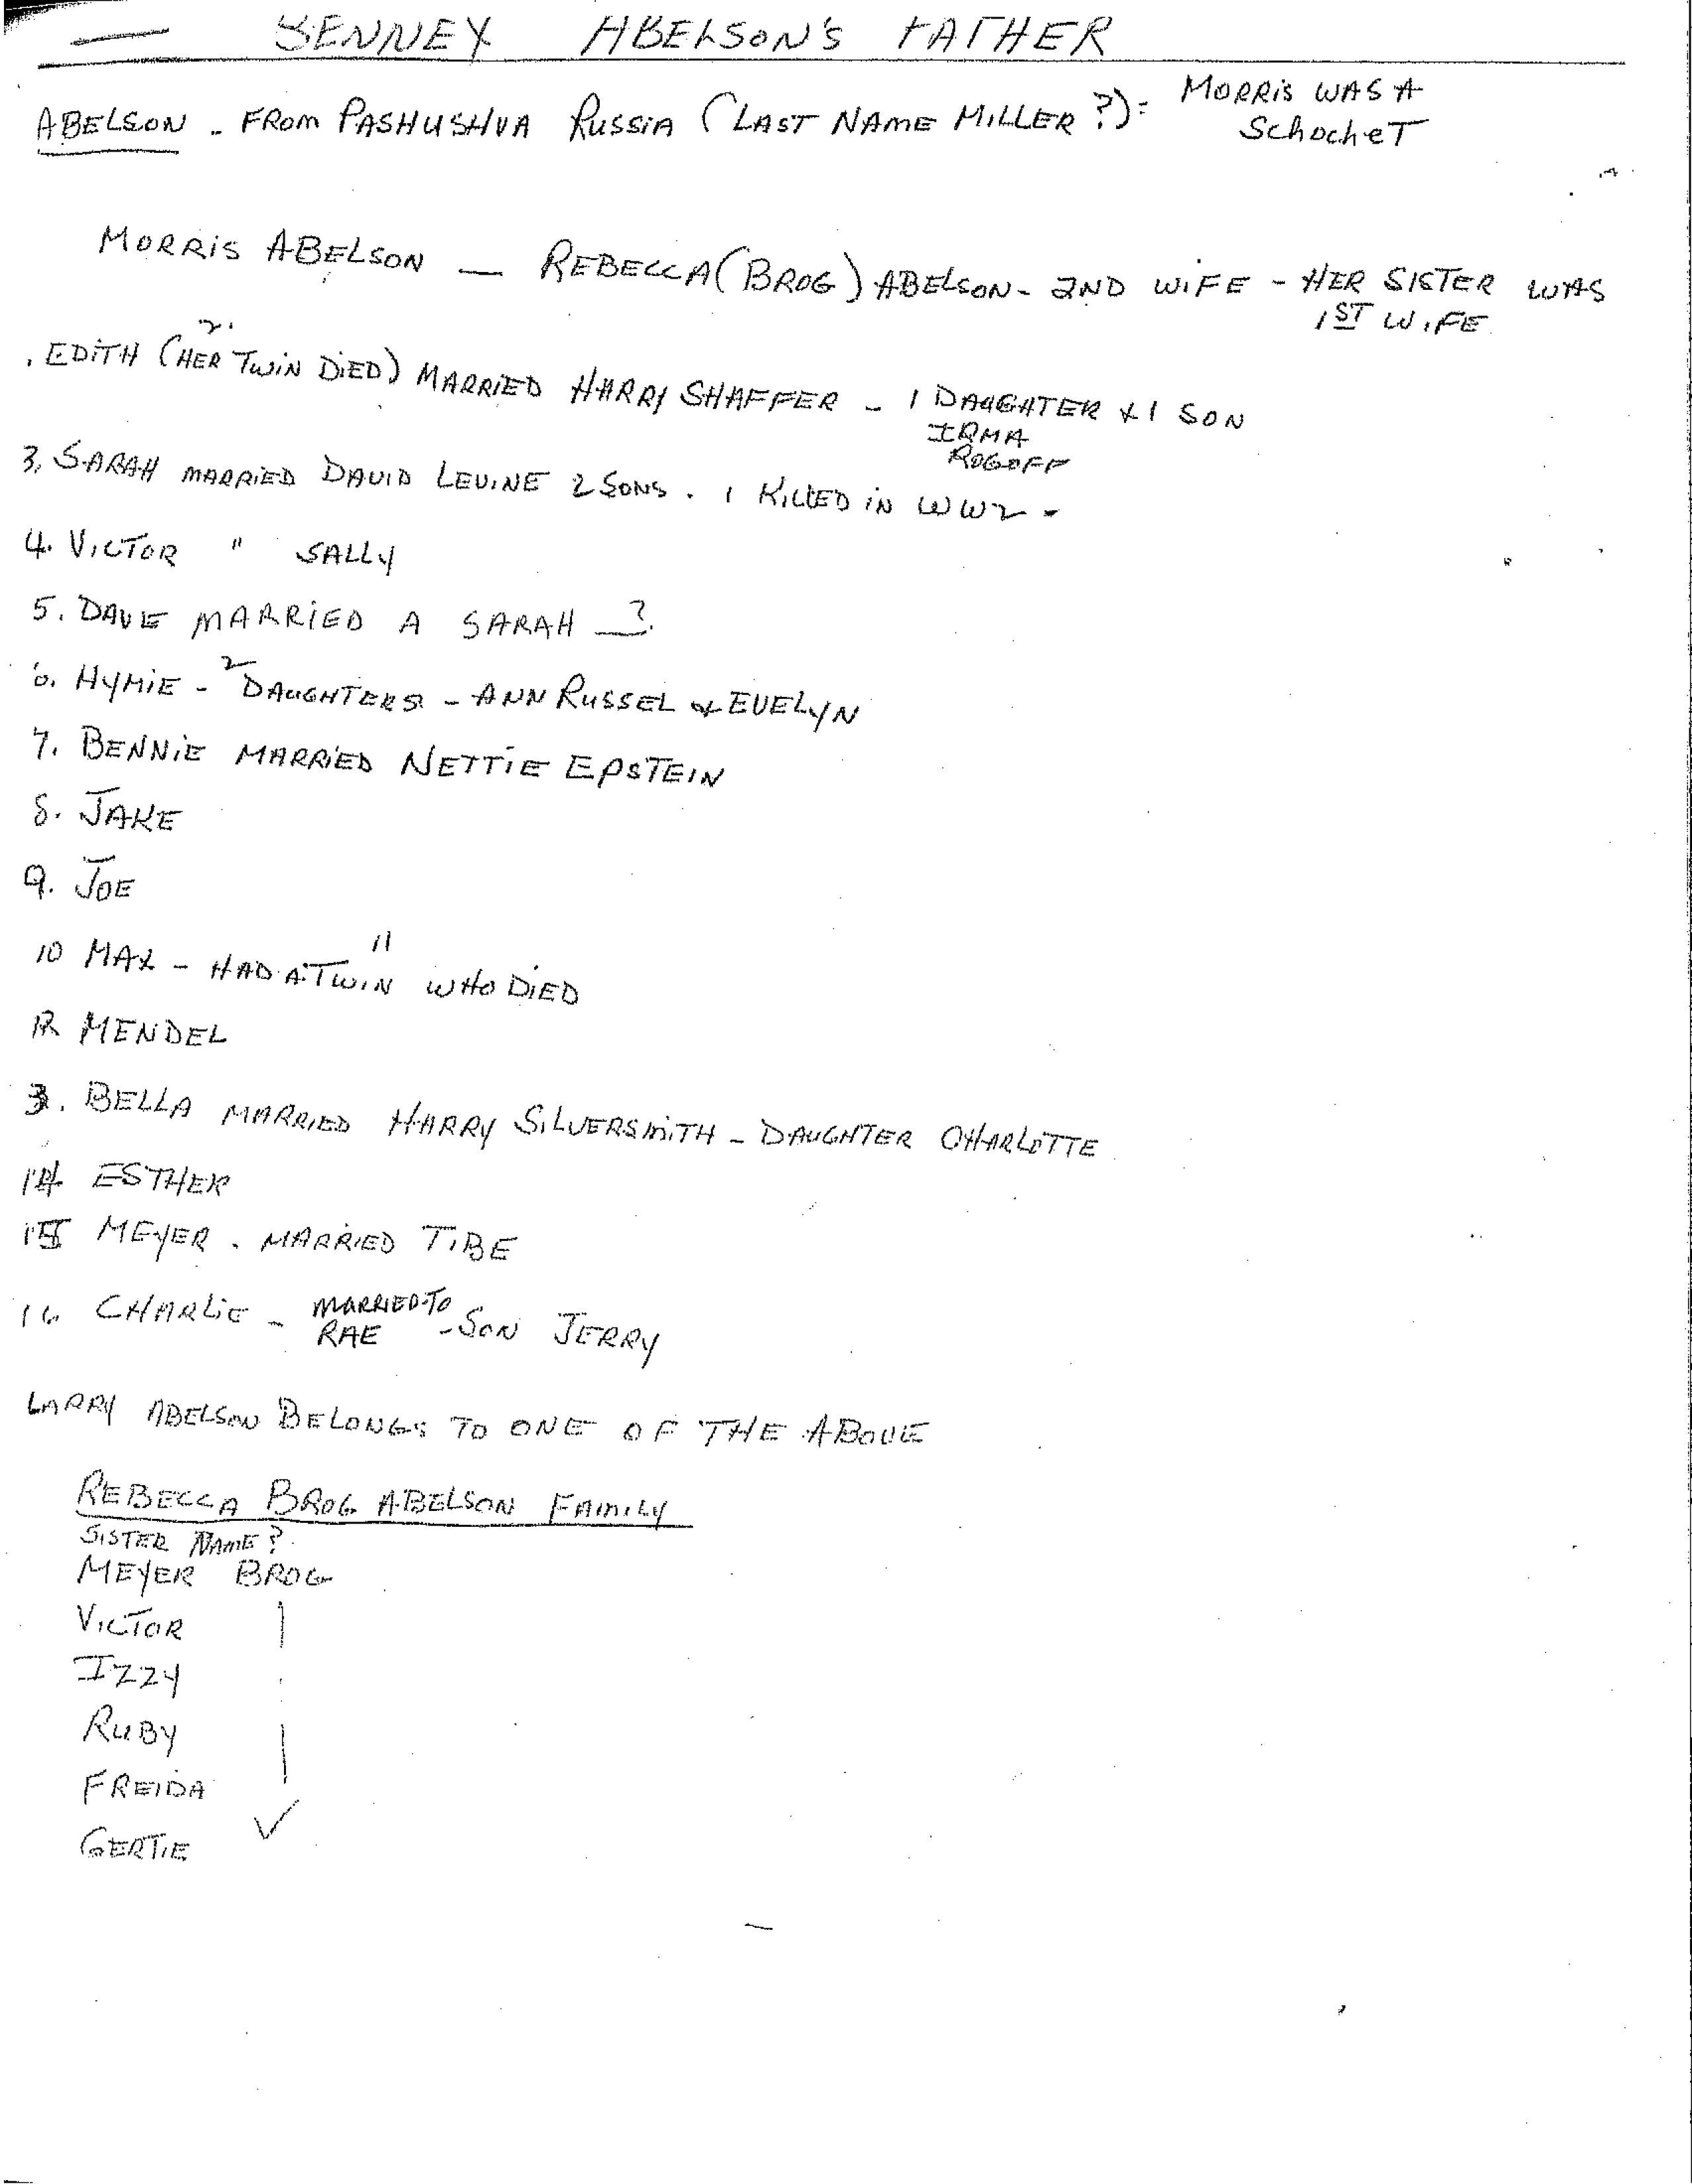 — BENNEY ABELSON'S FATHER
ABELSON - FROM PASHUSHVA RUSSIA (LAST NAME MILLER ?) = MORRIS WAS A
SchocheT
MORRIS ABELSON — REBECCA (BROG) ABELSON - 2ND WIFE - HER SISTER WAS
1ST WIFE
. EDITH (HER 2. TWIN DIED) MARRIED HARRY SHAFFER - 1 DAUGHTER & 1 SON
IRMA
ROGOFF
3. SARAH MARRIED DAVID LEVINE 2 SONS. 1 KILLED IN WW2 -
4. VICTOR " SALLY
5. DAVE MARRIED A SARAH ?
6. HYMIE - 2 DAUGHTERS - ANN RUSSEL & EVELYN
7. BENNIE MARRIED NETTIE EPSTEIN
8. JAKE
9. JOE
11
10 MAX - HAD A TWIN WHO DIED
12 MENDEL
3. BELLA MARRIED HARRY SILVERSMITH - DAUGHTER CHARLOTTE
14 ESTHER
15 MEYER - MARRIED TIBE
16 CHARLIE - MARRIED TO RAE - SON JERRY
LARRY ABELSON BELONGS TO ONE OF THE ABOVE
REBECCA BROG ABELSON FAMILY
SISTER NAME?
MEYER BROG
VICTOR
IZZY
RUBY
FREIDA
GERTIE